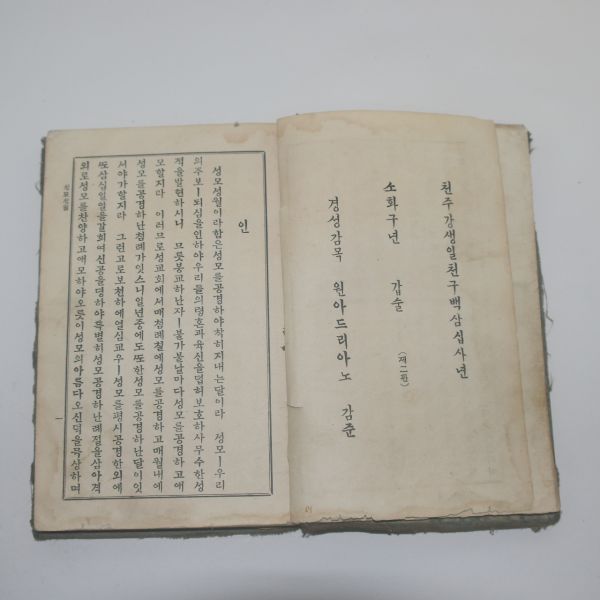 천주강생일천구백삼십사년
쇼화구년 갑슐 (제二판)
경성감목 원아드리아노 감준
인
셩모셩월이라함은셩모를공경하야착히지내는달이라 셩모ㅣ우리
의쥬보ㅣ되심을인하야우리들의령혼과육신을덥허보호하사무수한셩
적을발현하시니 므릇봉교하난쟈ㅣ불가불날마다셩모를공경하고애
모할지라 이러므로셩교회에서매쳠례칠에셩모를공경하고매월내에
셩모를공경하난쳠례가잇스니일년즁에도ᄯᅩ한셩모를공경하난달이잇
서야가할지라 그런고로보텬하에열심교우ㅣ셩모를평시공경한외에
ᄯᅩ삼십일일을갈희여신공을뎡하야특별히셩모공경하난례졀을삼아겨
외로셩모를찬양하고애모하야오릇이셩모의아름다오신덕을묵샹하며
셩모셩월
一